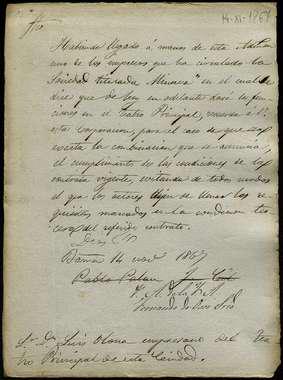 14-XI-1867
Habiendo llegado á manos de esta
uno de los impresos que ha circulado la
Sociedad titulada en el cual se
dice que de hoy en adelante dará funciones
en el Teatro Principal, recuerda á V.
esta Corporacion, para el caso de que sea
cierta la combinacion que se anuncia,
el cumplimiento de las condiciones de la
contrata vigente, evitando de todos modos
el que los actores dejen de llenar los requisitos
marcados en la condicion
del referido contrato.
Dios
Barna 14 nov 1867
Pablo Palau
Fernando de
Sr. Dn. Luis Olona empresario del Teatro
Principal de esta Ciudad.